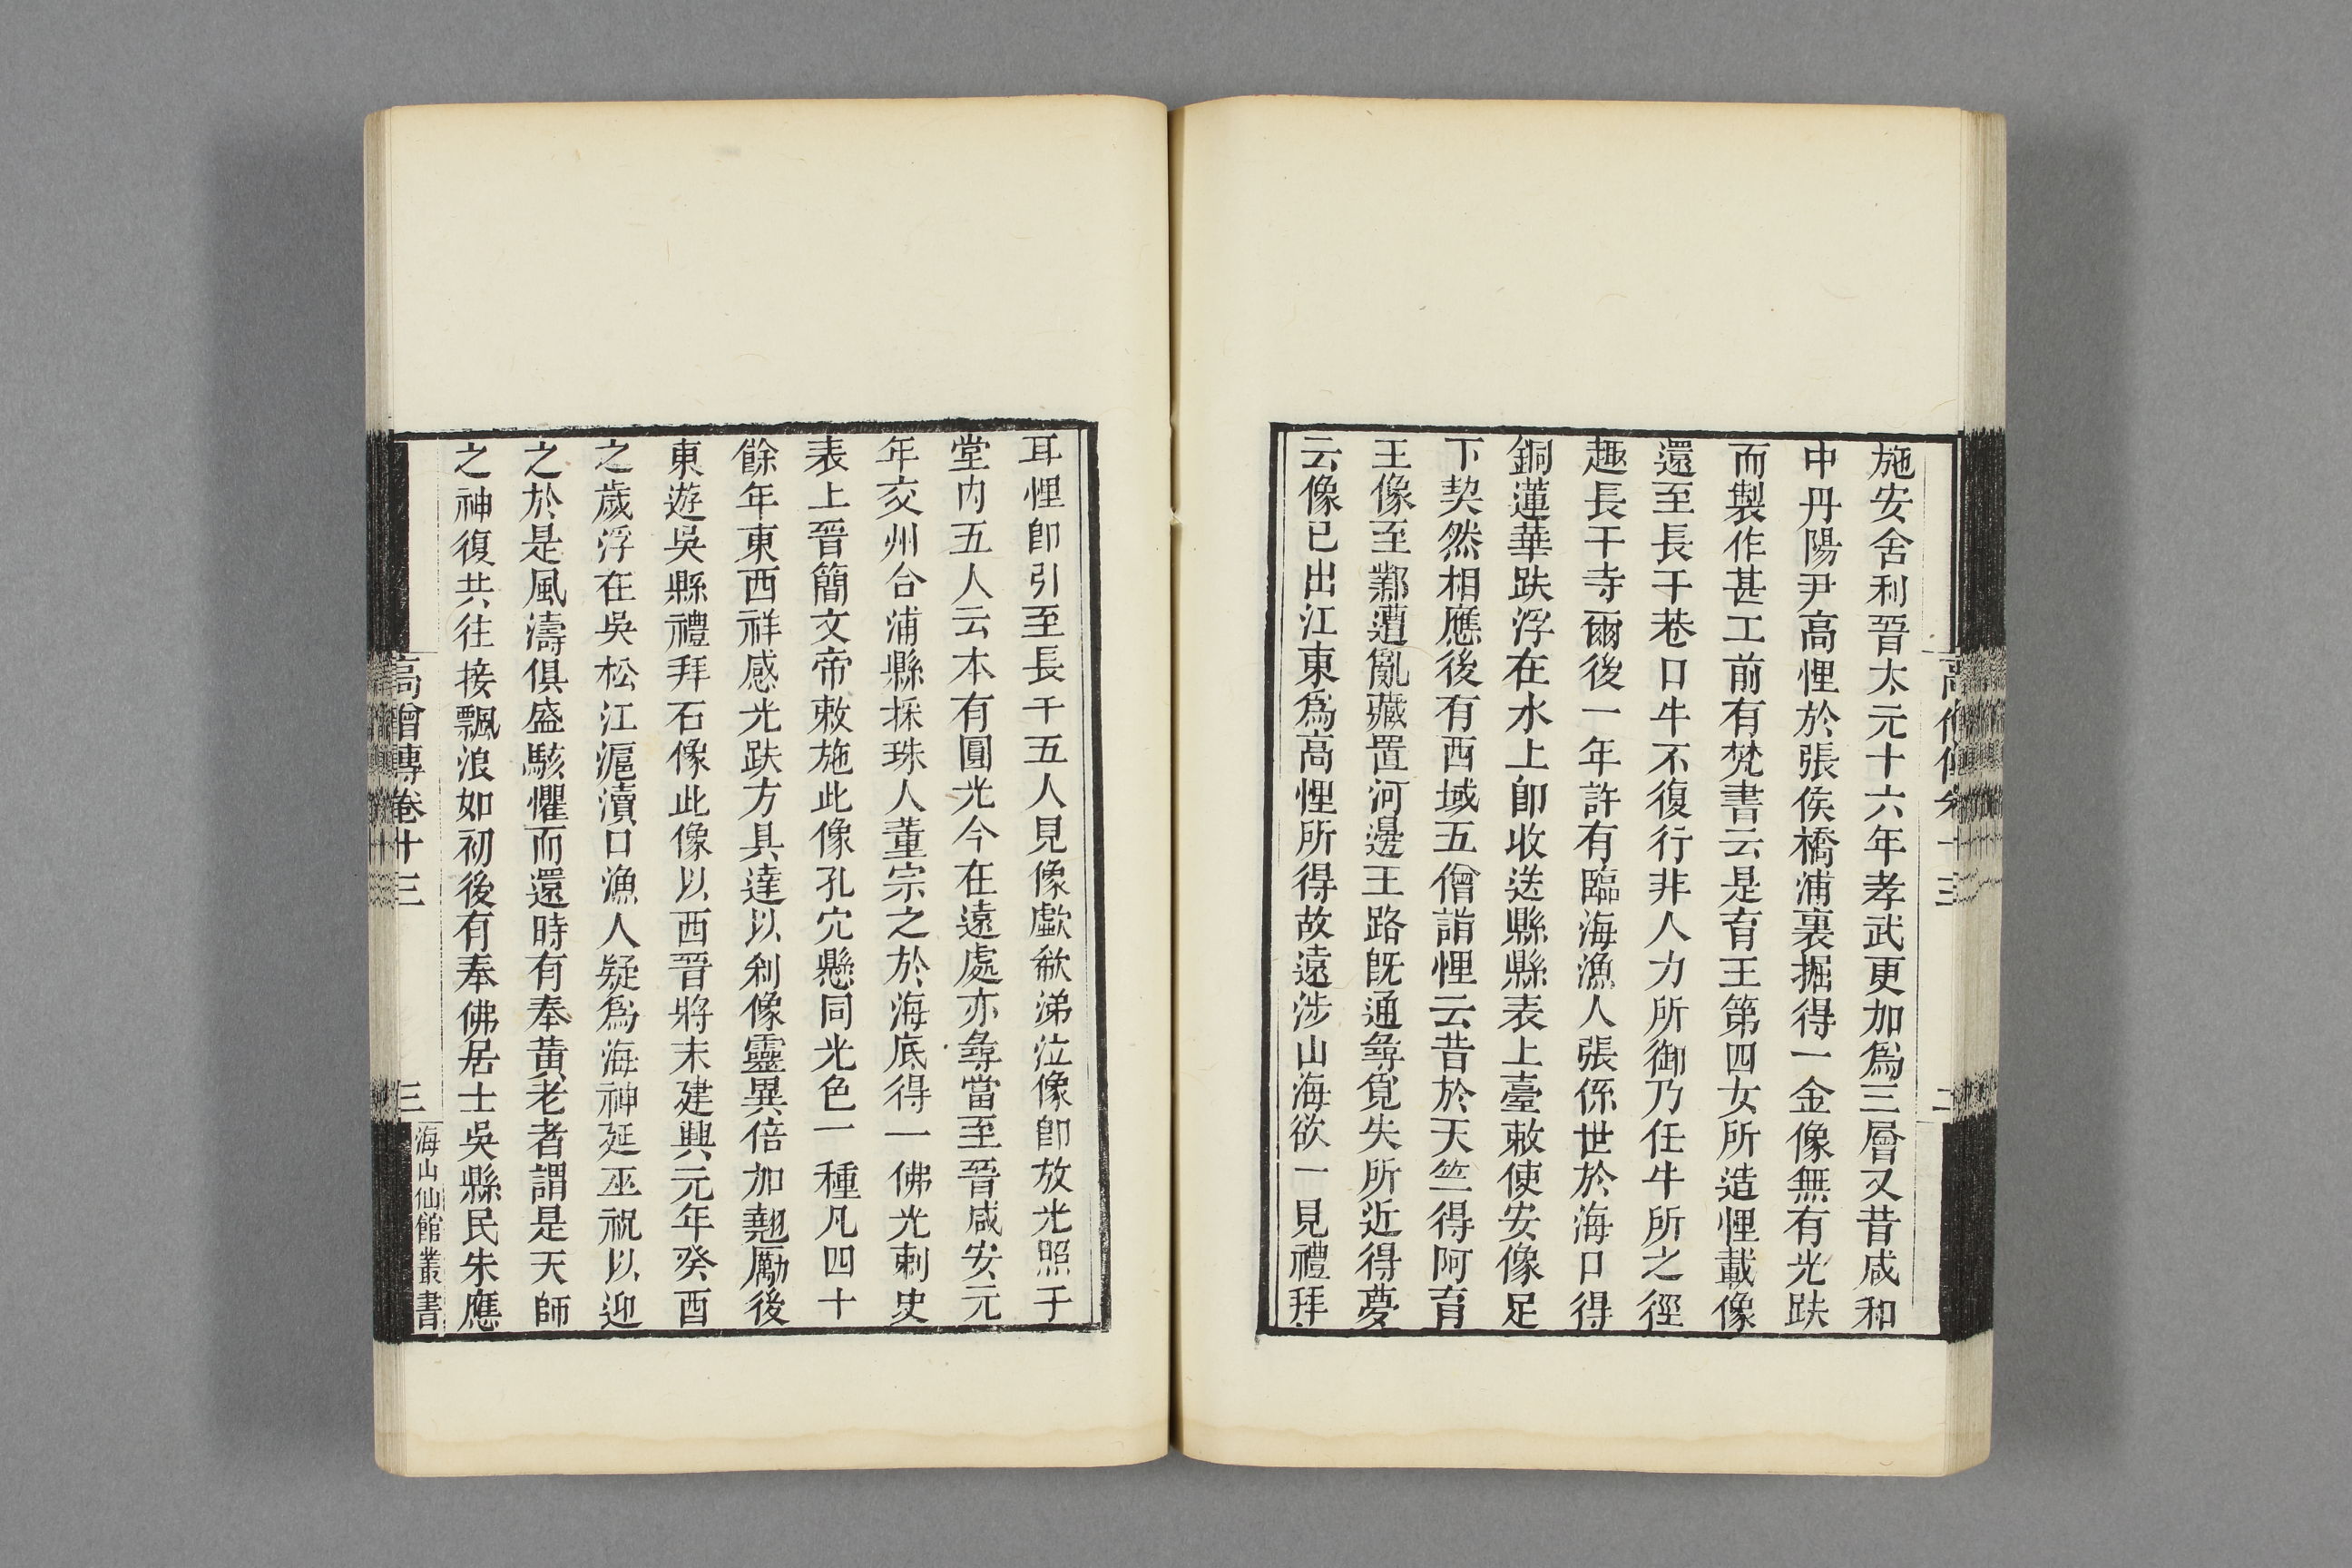 施安舍利晉太元十六年孝武更加爲三層又昔咸和
中丹陽尹高悝於張侯橋浦裏掘得一金像無有光趺
而製作甚工前有梵書云是育王第四女所造悝載像
還至長干巷口牛不復行非人力所御乃任牛所之徑
趣長干寺爾後一年許有臨海漁人張係世於海口得
銅蓮華趺浮在水上卽收送縣縣表上臺敕使安像足
下契然相應後有西域五僧詣悝云昔於天竺得阿育
王像至鄴遭亂藏置河邊王路既通尋覓失所近得夢
云像已出江東爲高悝所得故遠涉山海欲一見禮拜
耳悝卽引至長干五人見像歔欷涕泣像卽放光照于
堂内五人云本有圓光今在遠處亦尋當至晉咸安元
年交州合浦縣採珠人董宗之於海底得一佛光刺史
表上晉簡文帝敕施此像孔穴懸同光色一種凡四十
餘年東西祥感光趺方具達以刹像靈異倍加翹勵後
東遊吳縣禮拜石像此像以西晉將末建興元年癸酉
之歲浮在吳松江滬瀆口漁人疑爲海神延巫祝以迎
之於是風濤俱盛駭懼而還時有奉黃老者謂是天師
之神復共往接飄浪如初後有奉佛居士吳縣民朱應
高僧傳卷十三
三
海山仙館叢書